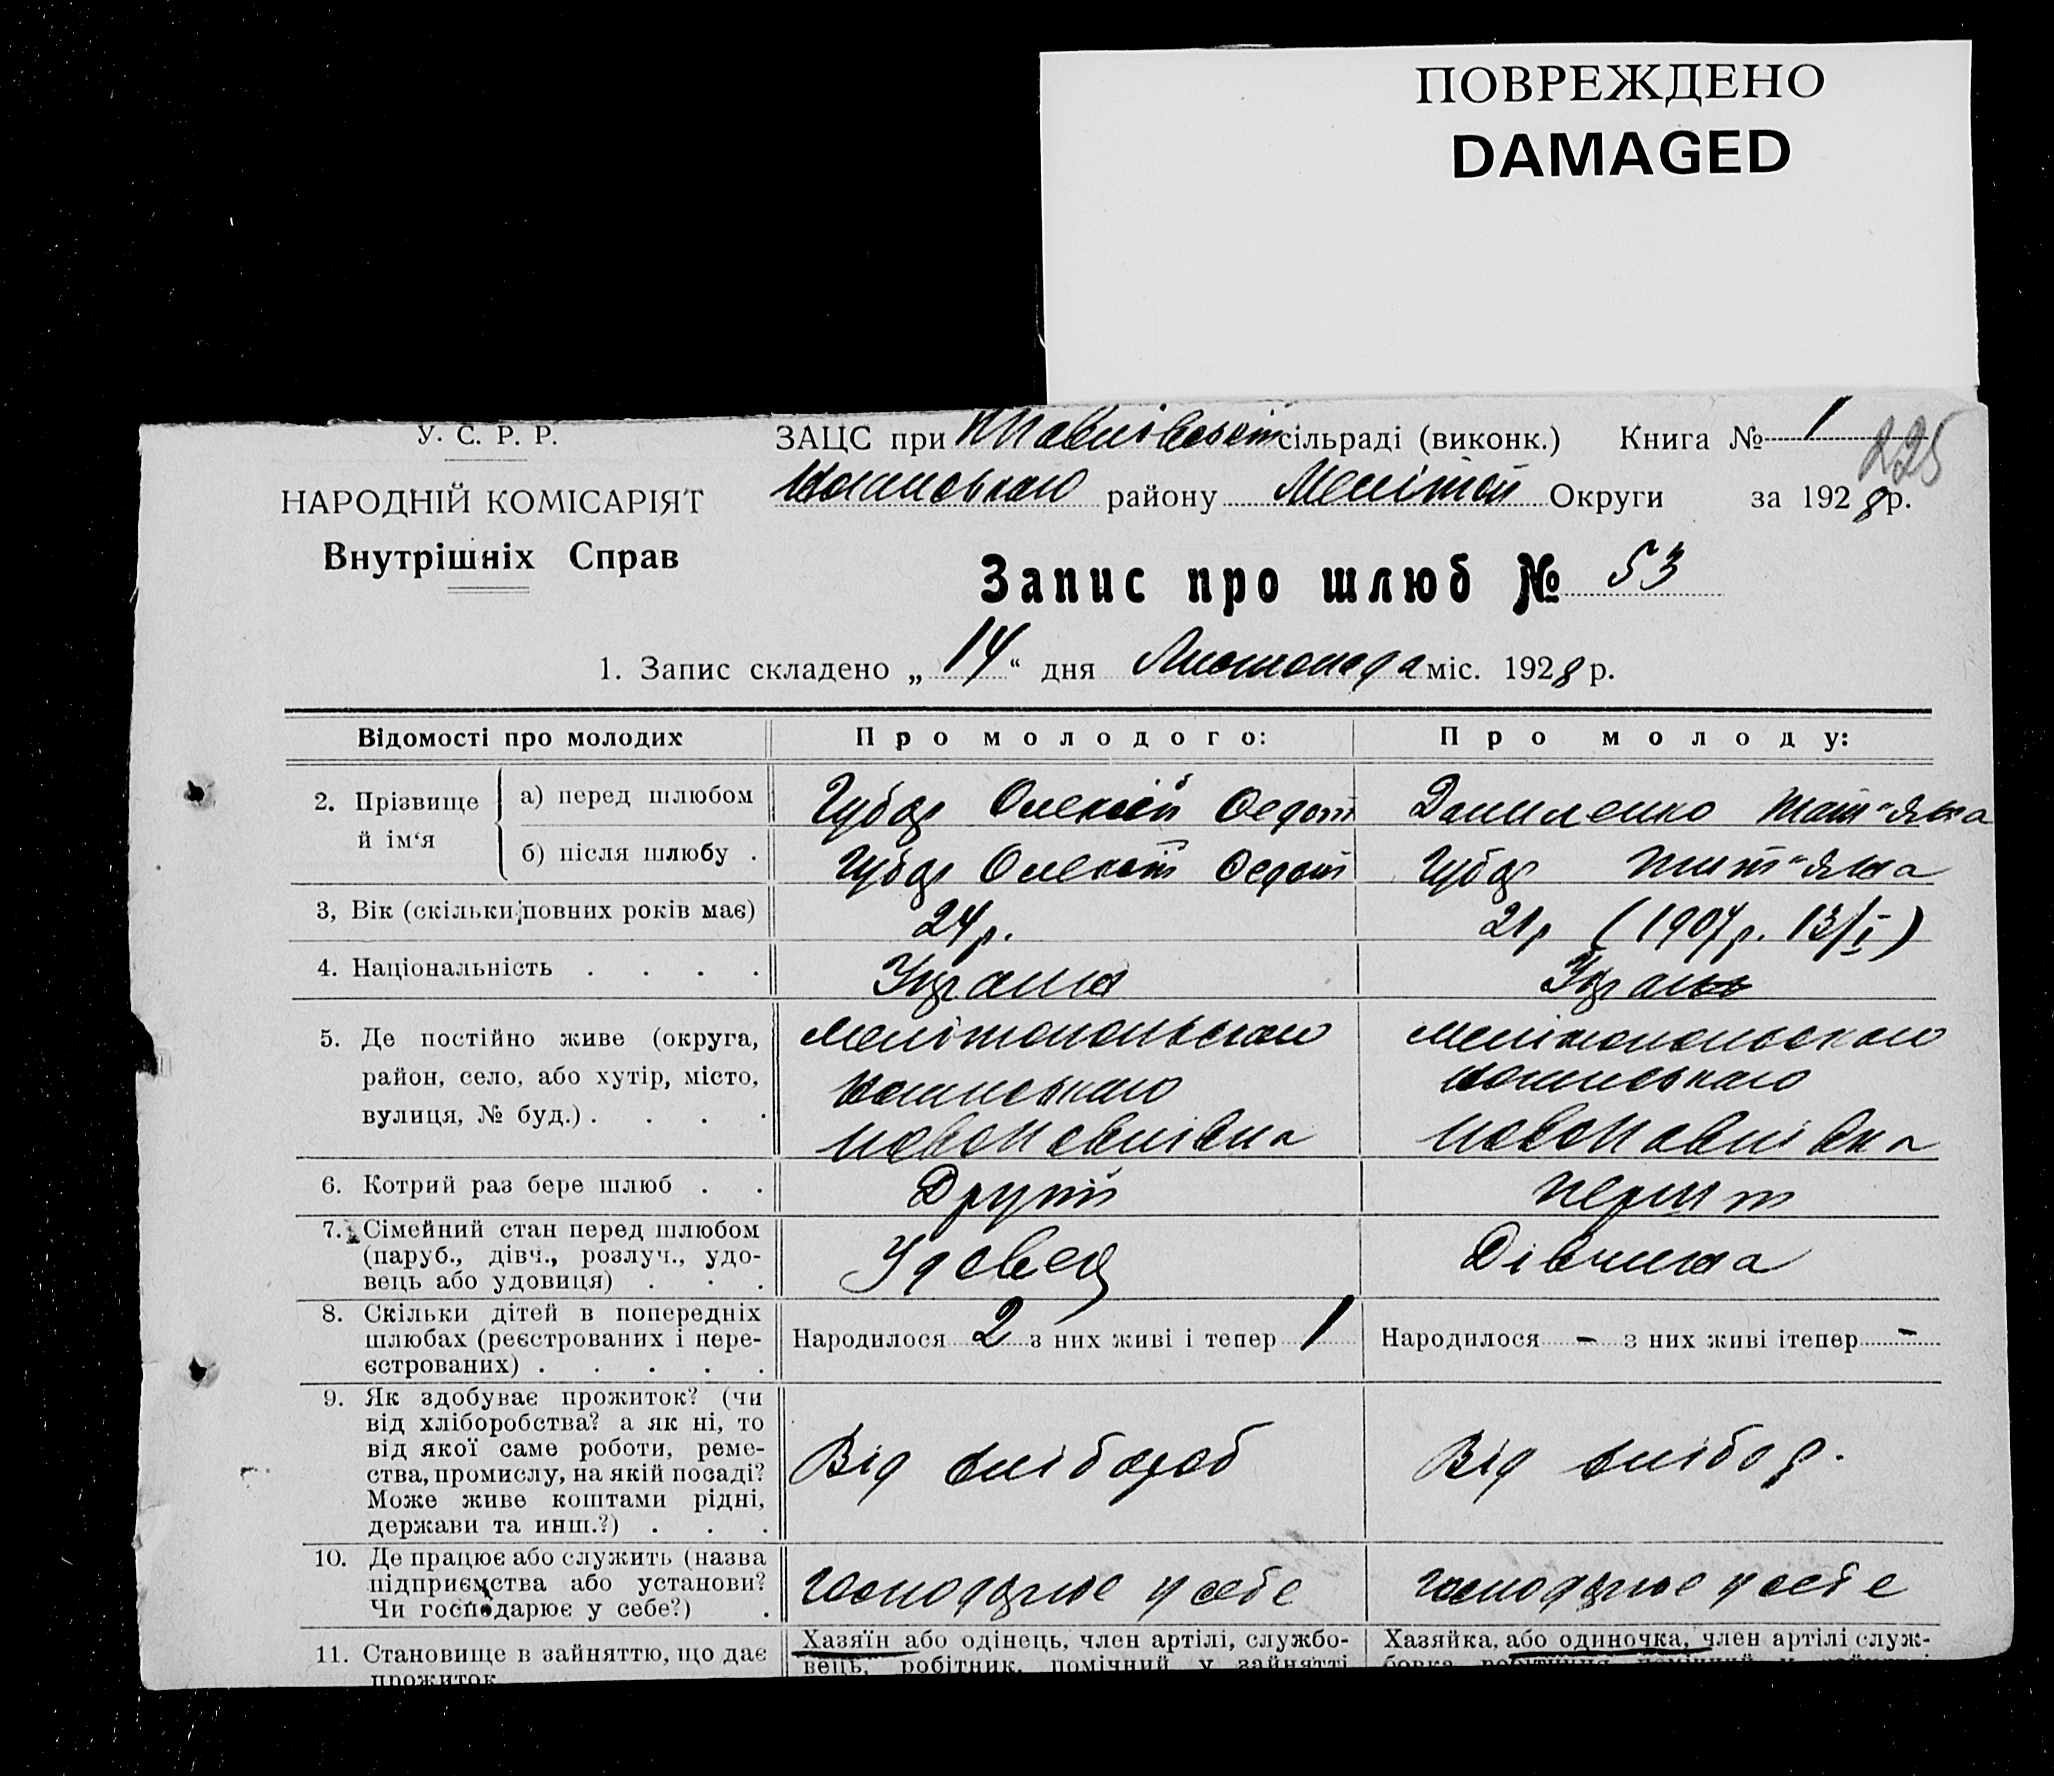 ПОВРЕЖДЕНО
DAMAGED
У. С. Р. Р.
ЗАЦС при сільраді (виконк.) Книга № 1
225
НАРОДНІЙ КОМІСАРІЯТ
району Мелітоп Округи за 1928 р.
Внутрішніх Справ
Запис про шлюб № 53
1. Запис складено „14“ дня Листопада міс. 1928 р.
Відомості про молодих
Про молодого:
Про молоду:
2. Прізвище й ім‘я
а) перед шлюбом
Губар Олексій Федот
Даниленко Тат"яна
б) після шлюбу .
Губар Олексій Федот
Губар Тат"яна
3, Вік (скільки повних років має)
24 р.
21 р (1907 р. 13/I)
4. Національність . . . .
Україн
5. Де постійно живе (округа,
район, село, або хутір, місто,
вулиця, № буд.) . . . .
Мелітопольського
Новопавлівка
Мелітопольського
Новопавлівка
6. Котрий раз бере шлюб . .
Другий
Перший
7. Сімейний стан перед шлюбом
(паруб., дівч., розлуч., удо-
вець або удовиця) . . .
Удовец
Дівчина
8. Скільки дітей в попередніх
шлюбах (реєстрованих і нере-
єстрованих) . . . . .
Народилося 2 з них живі і тепер 1
Народилося - з них живі ітепер -
9. Як здобуває прожиток? (чи
від хліборобства? а як ні, то
від якої саме роботи, реме-
ства, промислу, на якій посаді?
Може живе коштами рідні,
держави та инш.?) . . .
Від хлібороб
Від хлібор.
10. Де працює або служить (назва
підприємства або установи?
Чи господарює у себе?) .
господарює у себе
господарює у себе
11. Становище в зайняттю, що дає
прожиток
Хазяїн або одінець, член артілі, службо-
вець, робітник, помічний у зайнятті
Хазяйка, або одиночка, член артілі служ-
бовка